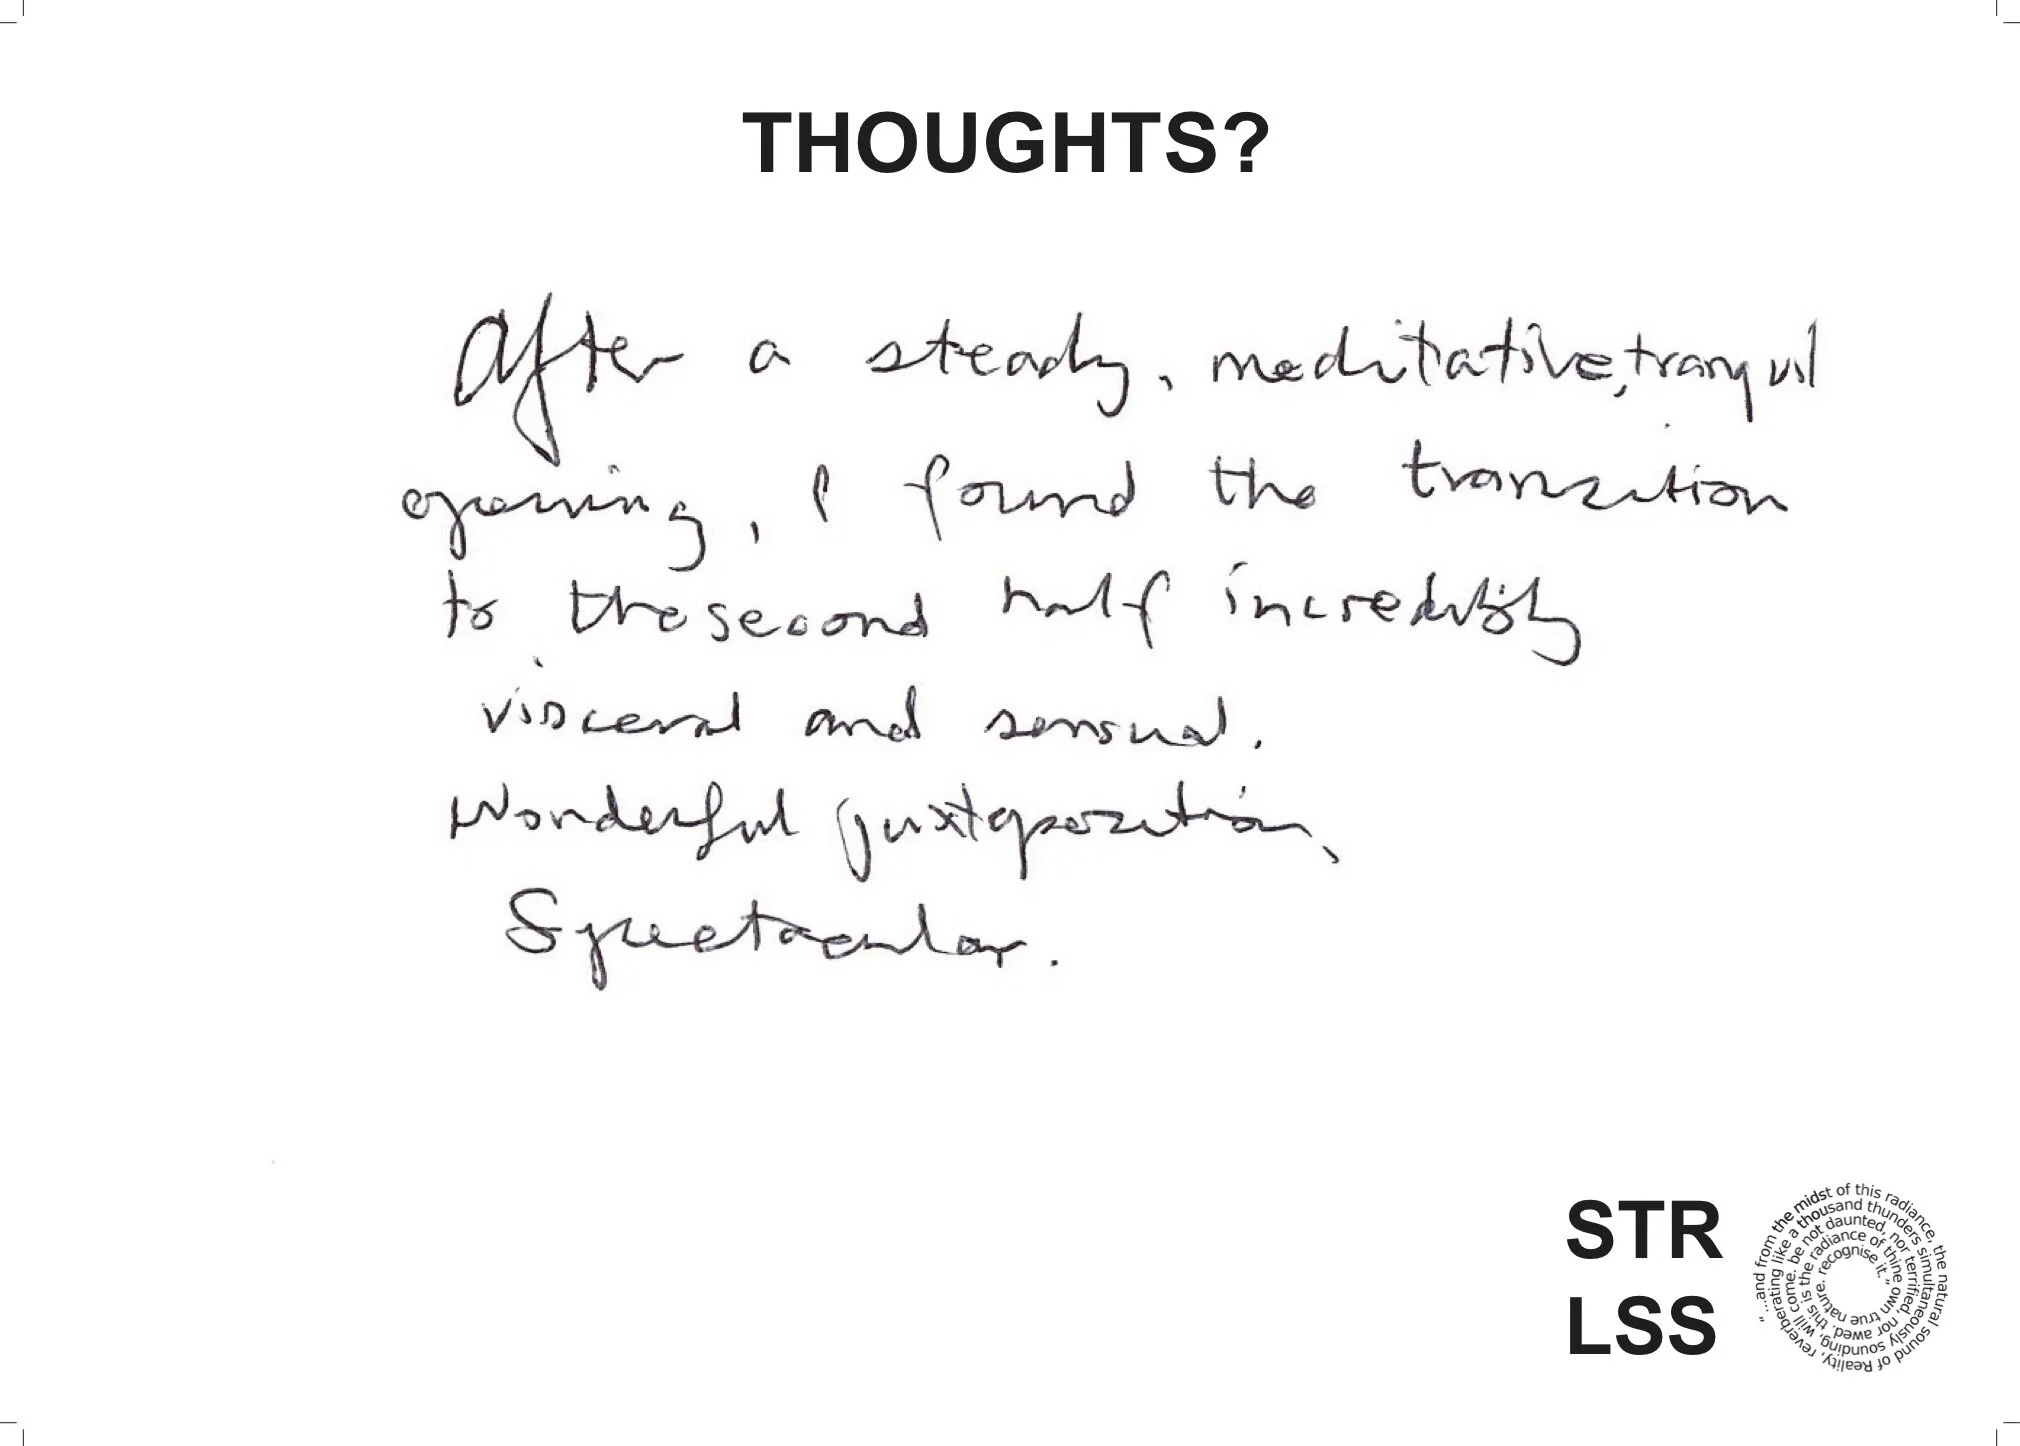 THOUGHTS?
After a steady, meditative, tranquil
opening, I found the transition
to the second half incredibly
visceral and sensual.
Wonderful juxtaposition,
Spectacular.
STR
LSS
"....and from the midst of this radiance, the natural sound of Reality, reverberating like a thousand thunders simultaneously sounding, will come. be not daunted, nor terrified, nor awed. this is the radiance of thine own true nature. recognise it."